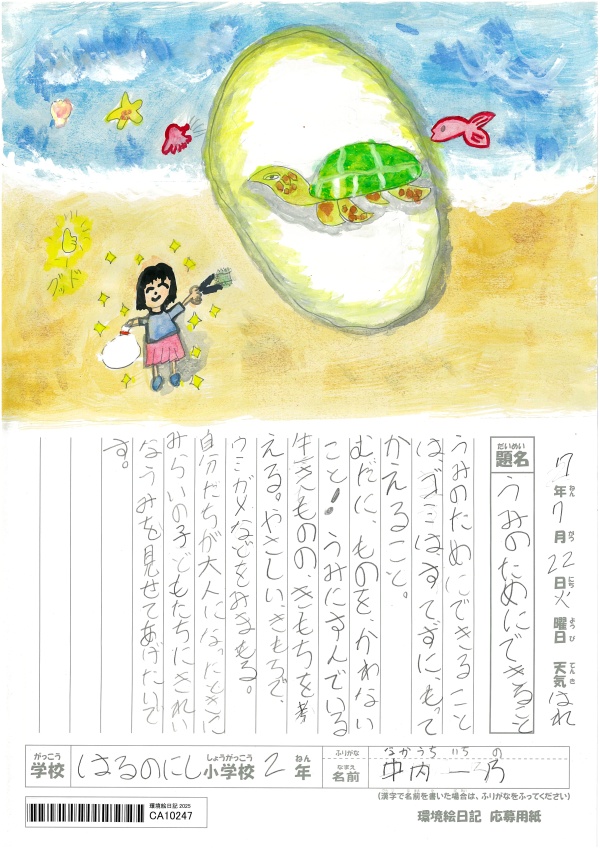 グッド
7年7月22日火曜日 天気はれ
ねん がつ にち ようび てんき
だいめい
題名 うみのためにできること
うみのためにできること
は、ゴミはすてずに、もって
かえること。
むだに、ものを、かわない
こと！うみにすんでいる
生きものの、きもちを考
える。やさしい、きもちで、
ウミガメなどをみまもる。
自分たちが大人になったときに
みらいの子どもたちにきれい
なうみを見せてあげたいで
す。
がっこう しょうがっこう ねん
学校 はるのにし小学校 2年
ふりがな なかうち いちの
なまえ
名前 中内 一乃
(漢字で名前を書いた場合は、ふりがなをふってください)
環境絵日記 2025
CA10247
環境絵日記 応募用紙